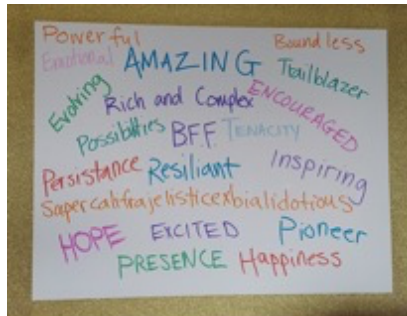 Powerful
Boundless
Emotional
AMAZING
Trailblazer
Evolving
Rich and Complex
ENCOURAGED
Possibilties
BFF
TENACITY
Persistance
Resiliant
Inspiring
Supercalifrajelisticexbialidotious
HOPE
EXCITED
Pioneer
PRESENCE
Happiness